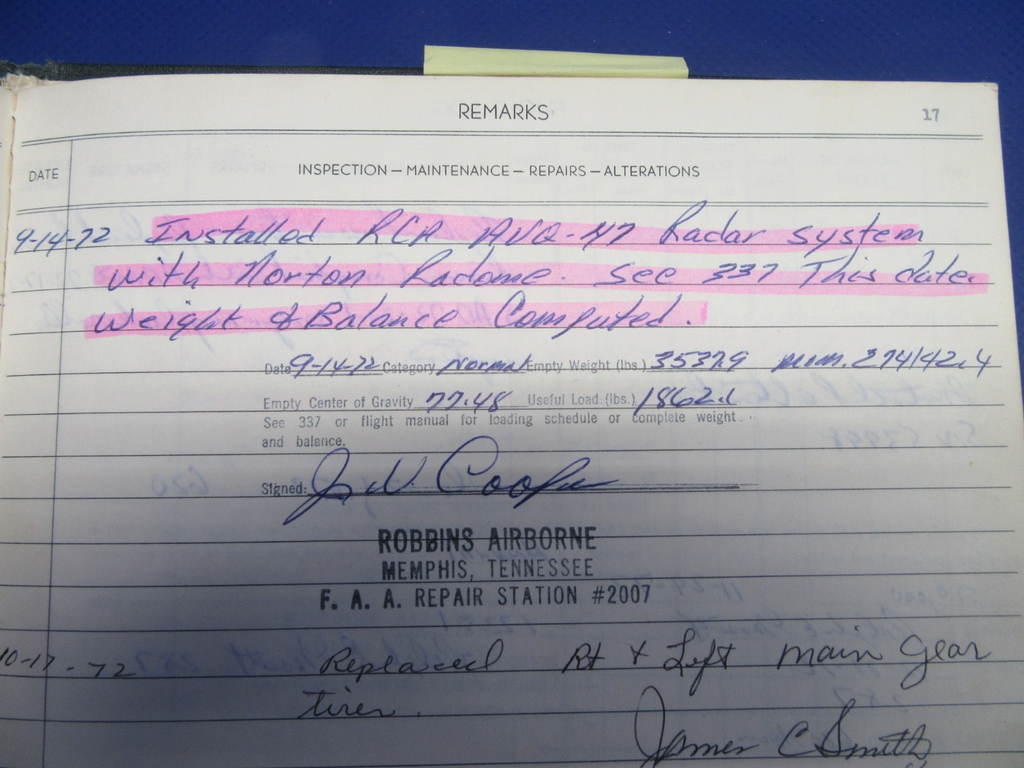 REMARKS 17
DATE INSPECTION — MAINTENANCE — REPAIRS — ALTERATIONS
9-14-72 Installed RCA AVQ-47 Radar system
with Norton Radome. See 337 This date.
Weight & Balance Computed.
Date 9-14-72 Category Normal Empty Weight (lbs.) 3537.9 mom. 274142.4
Empty Center of Gravity 77.48 Useful Load (lbs.) 1862.1
See 337 or flight manual for loading schedule or complete weight
and balance.
Signed: Cooper
ROBBINS AIRBORNE
MEMPHIS, TENNESSEE
F. A. A. REPAIR STATION #2007
10-17-72 Replaced Rt & Left main gear
tires.
James C Smith